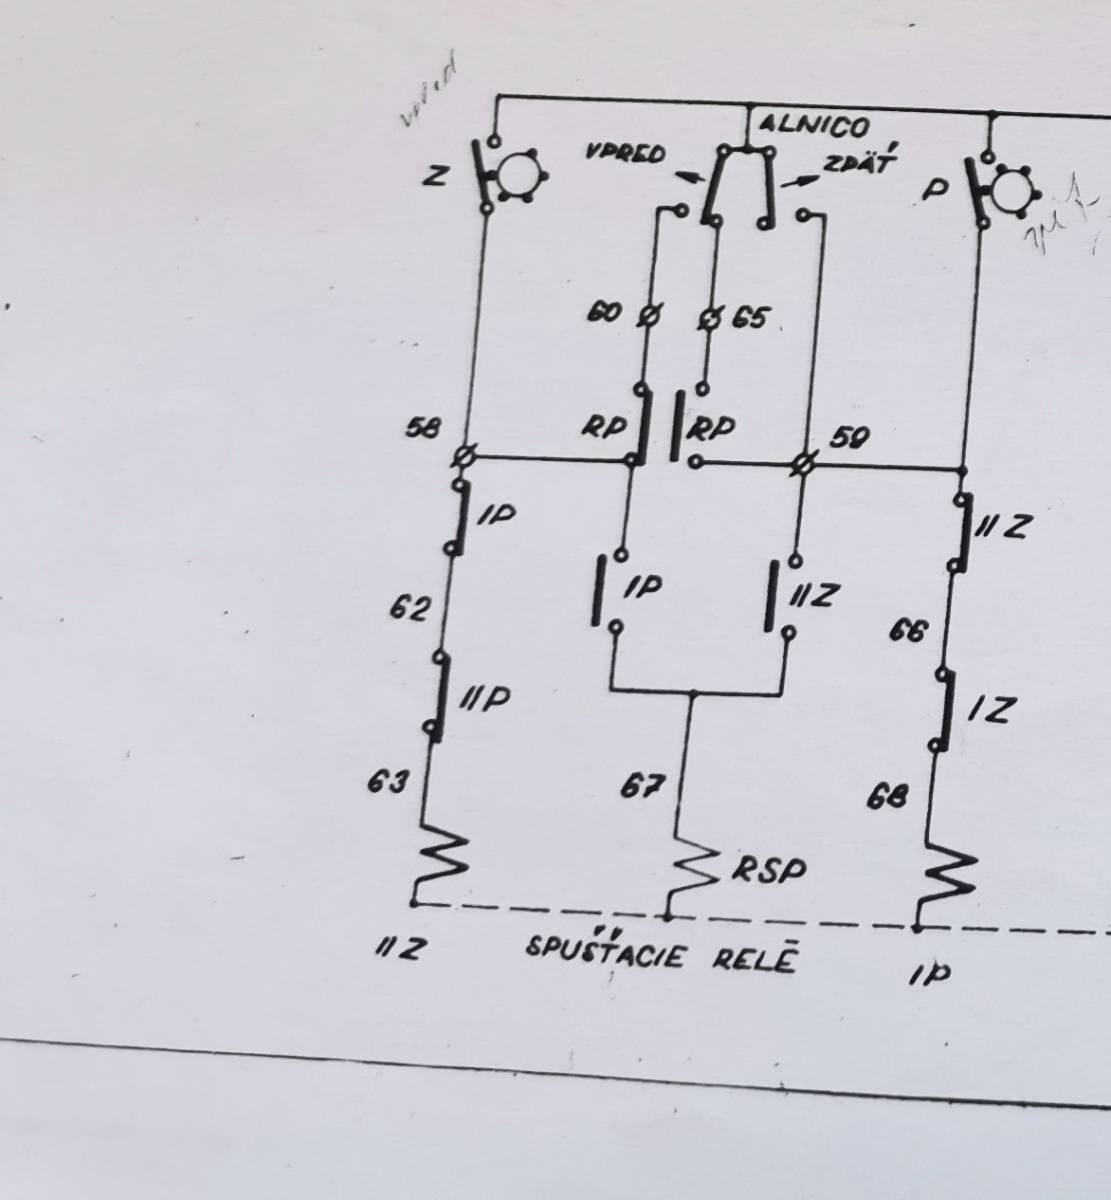 vpred
ALNICO
VPRED
ZPÄŤ
Z
P
60
65
58
RP
RP
59
IP
IIZ
62
IP
IIZ
66
IIP
IZ
63
67
68
RSP
IIZ
SPUŠŤACIE RELÉ
IP